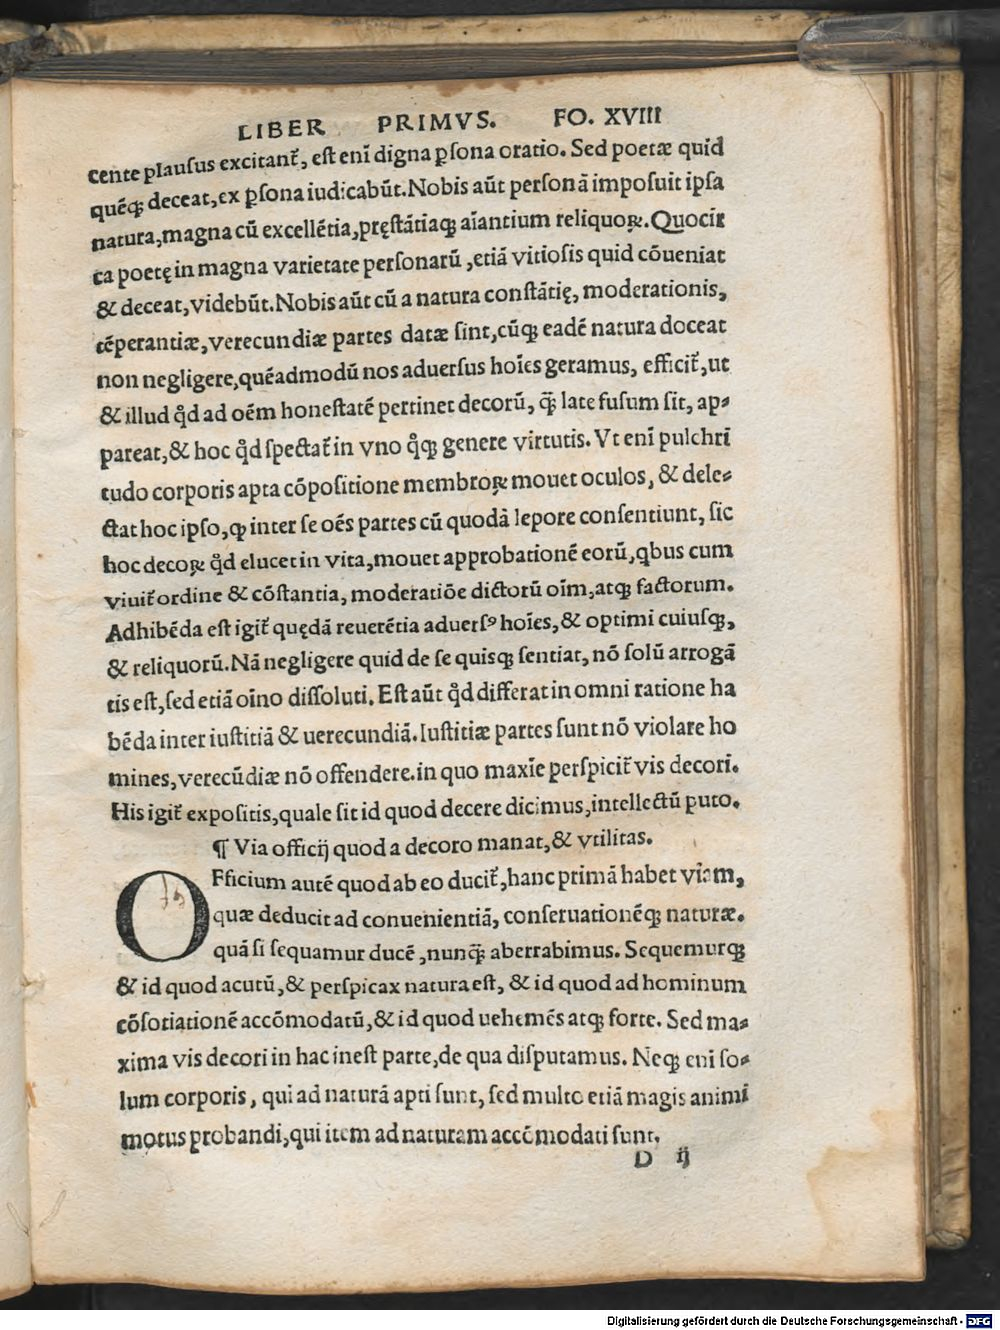 LIBER PRIMVS. FO. XVIII
cente plausus excitant᷑, est enī digna ꝑsona oratio. Sed poetæ quid
quēqꝫ deceat, ex ꝑsona iudicabūt. Nobis aūt personā imposuit ipsa
natura, magna cū excellētia, pręstātiaqꝫ aīantium reliquoꝝ. Quocir
ca poetę in magna varietate personarū, etiā vitiosis quid cōueniat
& deceat, videbūt. Nobis aūt cū a natura constātię, moderationis,
tēperantiæ, verecundiæ partes datæ sint, cūqꝫ eadē natura doceat
non negligere, quēadmodū nos aduersus hoīes geramus, efficit᷑, ut
& illud qď ad oēm honestatē pertinet decorū, q̄̃ late fusum sit, ap⸗
pareat, & hoc qď spectat᷑ in vno qͦqꝫ genere virtutis. Vt enī pulchri
tudo corporis apta cōpositione membroꝝ mouet oculos, & dele⸗
ctat hoc ipso, ꝙ inter se oēs partes cū quodā lepore consentiunt, sic
hoc decoꝝ qď elucet in vita, mouet approbationē eorū, qbus cum
viuit᷑ ordine & cōstantia, moderatiōe dictorū oīm, atqꝫ factorum.
Adhibēda est igit᷑ quędā reuerētia aduersꝰ hoīes, & optimi cuiusqꝫ,
& reliquorū. Nā negligere quid de se quisqꝫ sentiat, nō solū arrogā
tis est, sed etiā oīno dissoluti. Est aūt qď differat in omni ratione ha
bēda inter iustitiā & uerecundiā. Iustitiæ partes sunt nō violare ho
mines, verecūdiæ nō offendere. in quo maxīe perspicit᷑ vis decori.
His igit᷑ expositis, quale sit id quod decere dicimus, intellectū puto.
¶ Via officij quod a decoro manat, & vtilitas.
OFficium autē quod ab eo ducit᷑, hanc primā habet viam,
quæ deducit ad conuenientiā, conseruationēqꝫ naturæ.
quā si sequamur ducē, nunq̄̃ aberrabimus. Sequemurqꝫ
& id quod acutū, & perspicax natura est, & id quod ad hominum
cōsotiationē accōmodatū, & id quod uehemēs atqꝫ forte. Sed ma⸗
xima vis decori in hac inest parte, de qua disputamus. Neqꝫ enī so⸗
lum corporis, qui ad naturā apti sunt, sed multo etiā magis animi
motus probandi, qui item ad naturam accōmodati sunt.
D ij
Digitalisierung gefördert durch die Deutsche Forschungsgemeinschaft - DFG